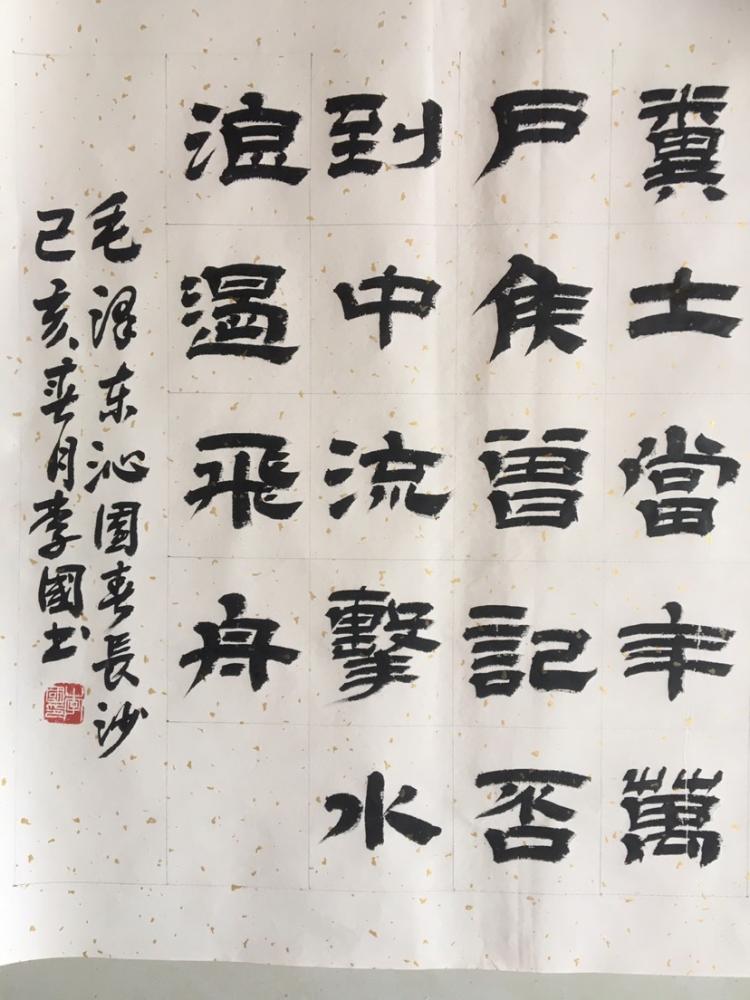 糞土當年萬
戶侯曾記否
到中流擊水
浪遏飛舟
毛泽东沁園春長沙
己亥春月李國书